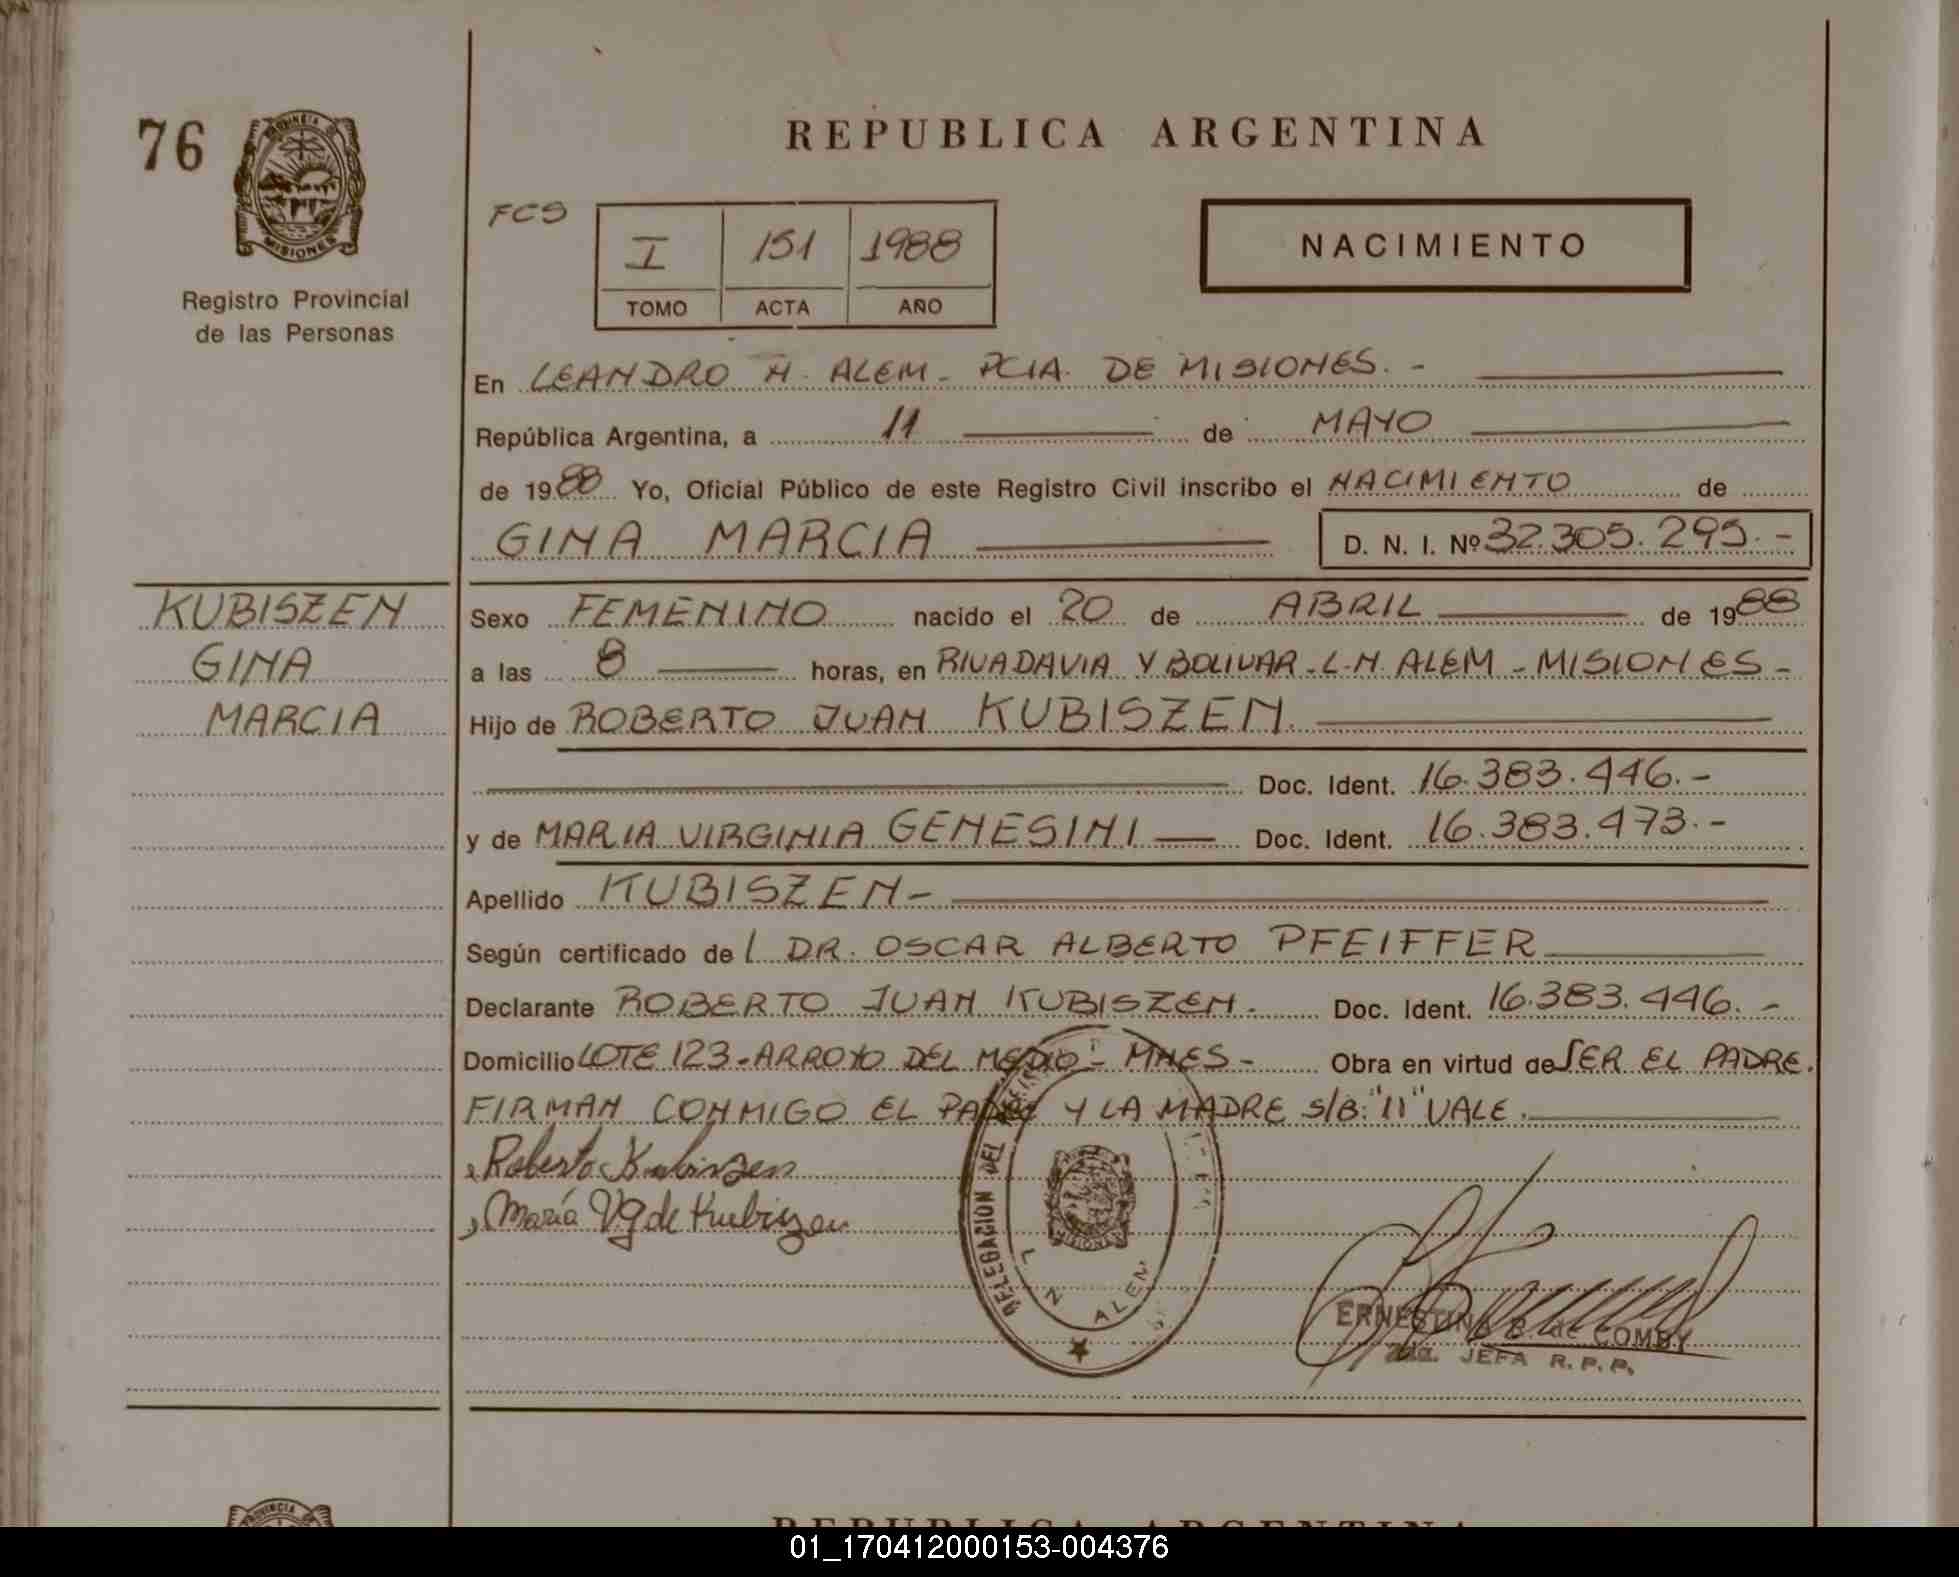 76
PROVINCIA DE
MISIONES
Registro Provincial
de las Personas
REPUBLICA ARGENTINA
FCS
I 151 1988
TOMO ACTA AÑO
NACIMIENTO
En LEANDRO N. ALEM - PCIA. DE MISIONES. -
República Argentina, a 11 de MAYO
de 1988 Yo, Oficial Público de este Registro Civil inscribo el NACIMIENTO de
GINA MARCIA D. N. I. Nº 32.305.295.-
KUBISZEN
GINA
MARCIA
Sexo FEMENINO nacido el 20 de ABRIL de 1988
a las 8 horas, en RIVADAVIA Y BOLIVAR - L.N. ALEM - MISIONES -
Hijo de ROBERTO JUAN KUBISZEN.
Doc. Ident. 16.383.446.-
y de MARIA VIRGINIA GENESINI Doc. Ident. 16.383.473.-
Apellido KUBISZEN-
Según certificado de l DR. OSCAR ALBERTO PFEIFFER
Declarante ROBERTO JUAN KUBISZEN. Doc. Ident. 16.383.446. -
Domicilio LOTE 123 - ARROYO DEL MEDIO - MNES - Obra en virtud de SER EL PADRE.
FIRMAN CONMIGO EL PADRE Y LA MADRE S/B: "11" VALE.
Roberto Kubiszen
María VG de Kubiszen
DELEGACION DEL
L N ALEM
ERNESTINA B. de COMBY
2da. JEFA R. P. P.
PROVINCIA
REPUBLICA ARGENTINA
01_170412000153-004376